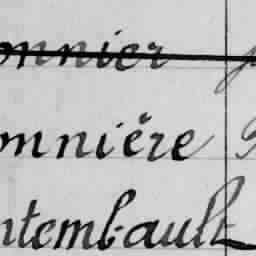 onnier
onnière
ntembault